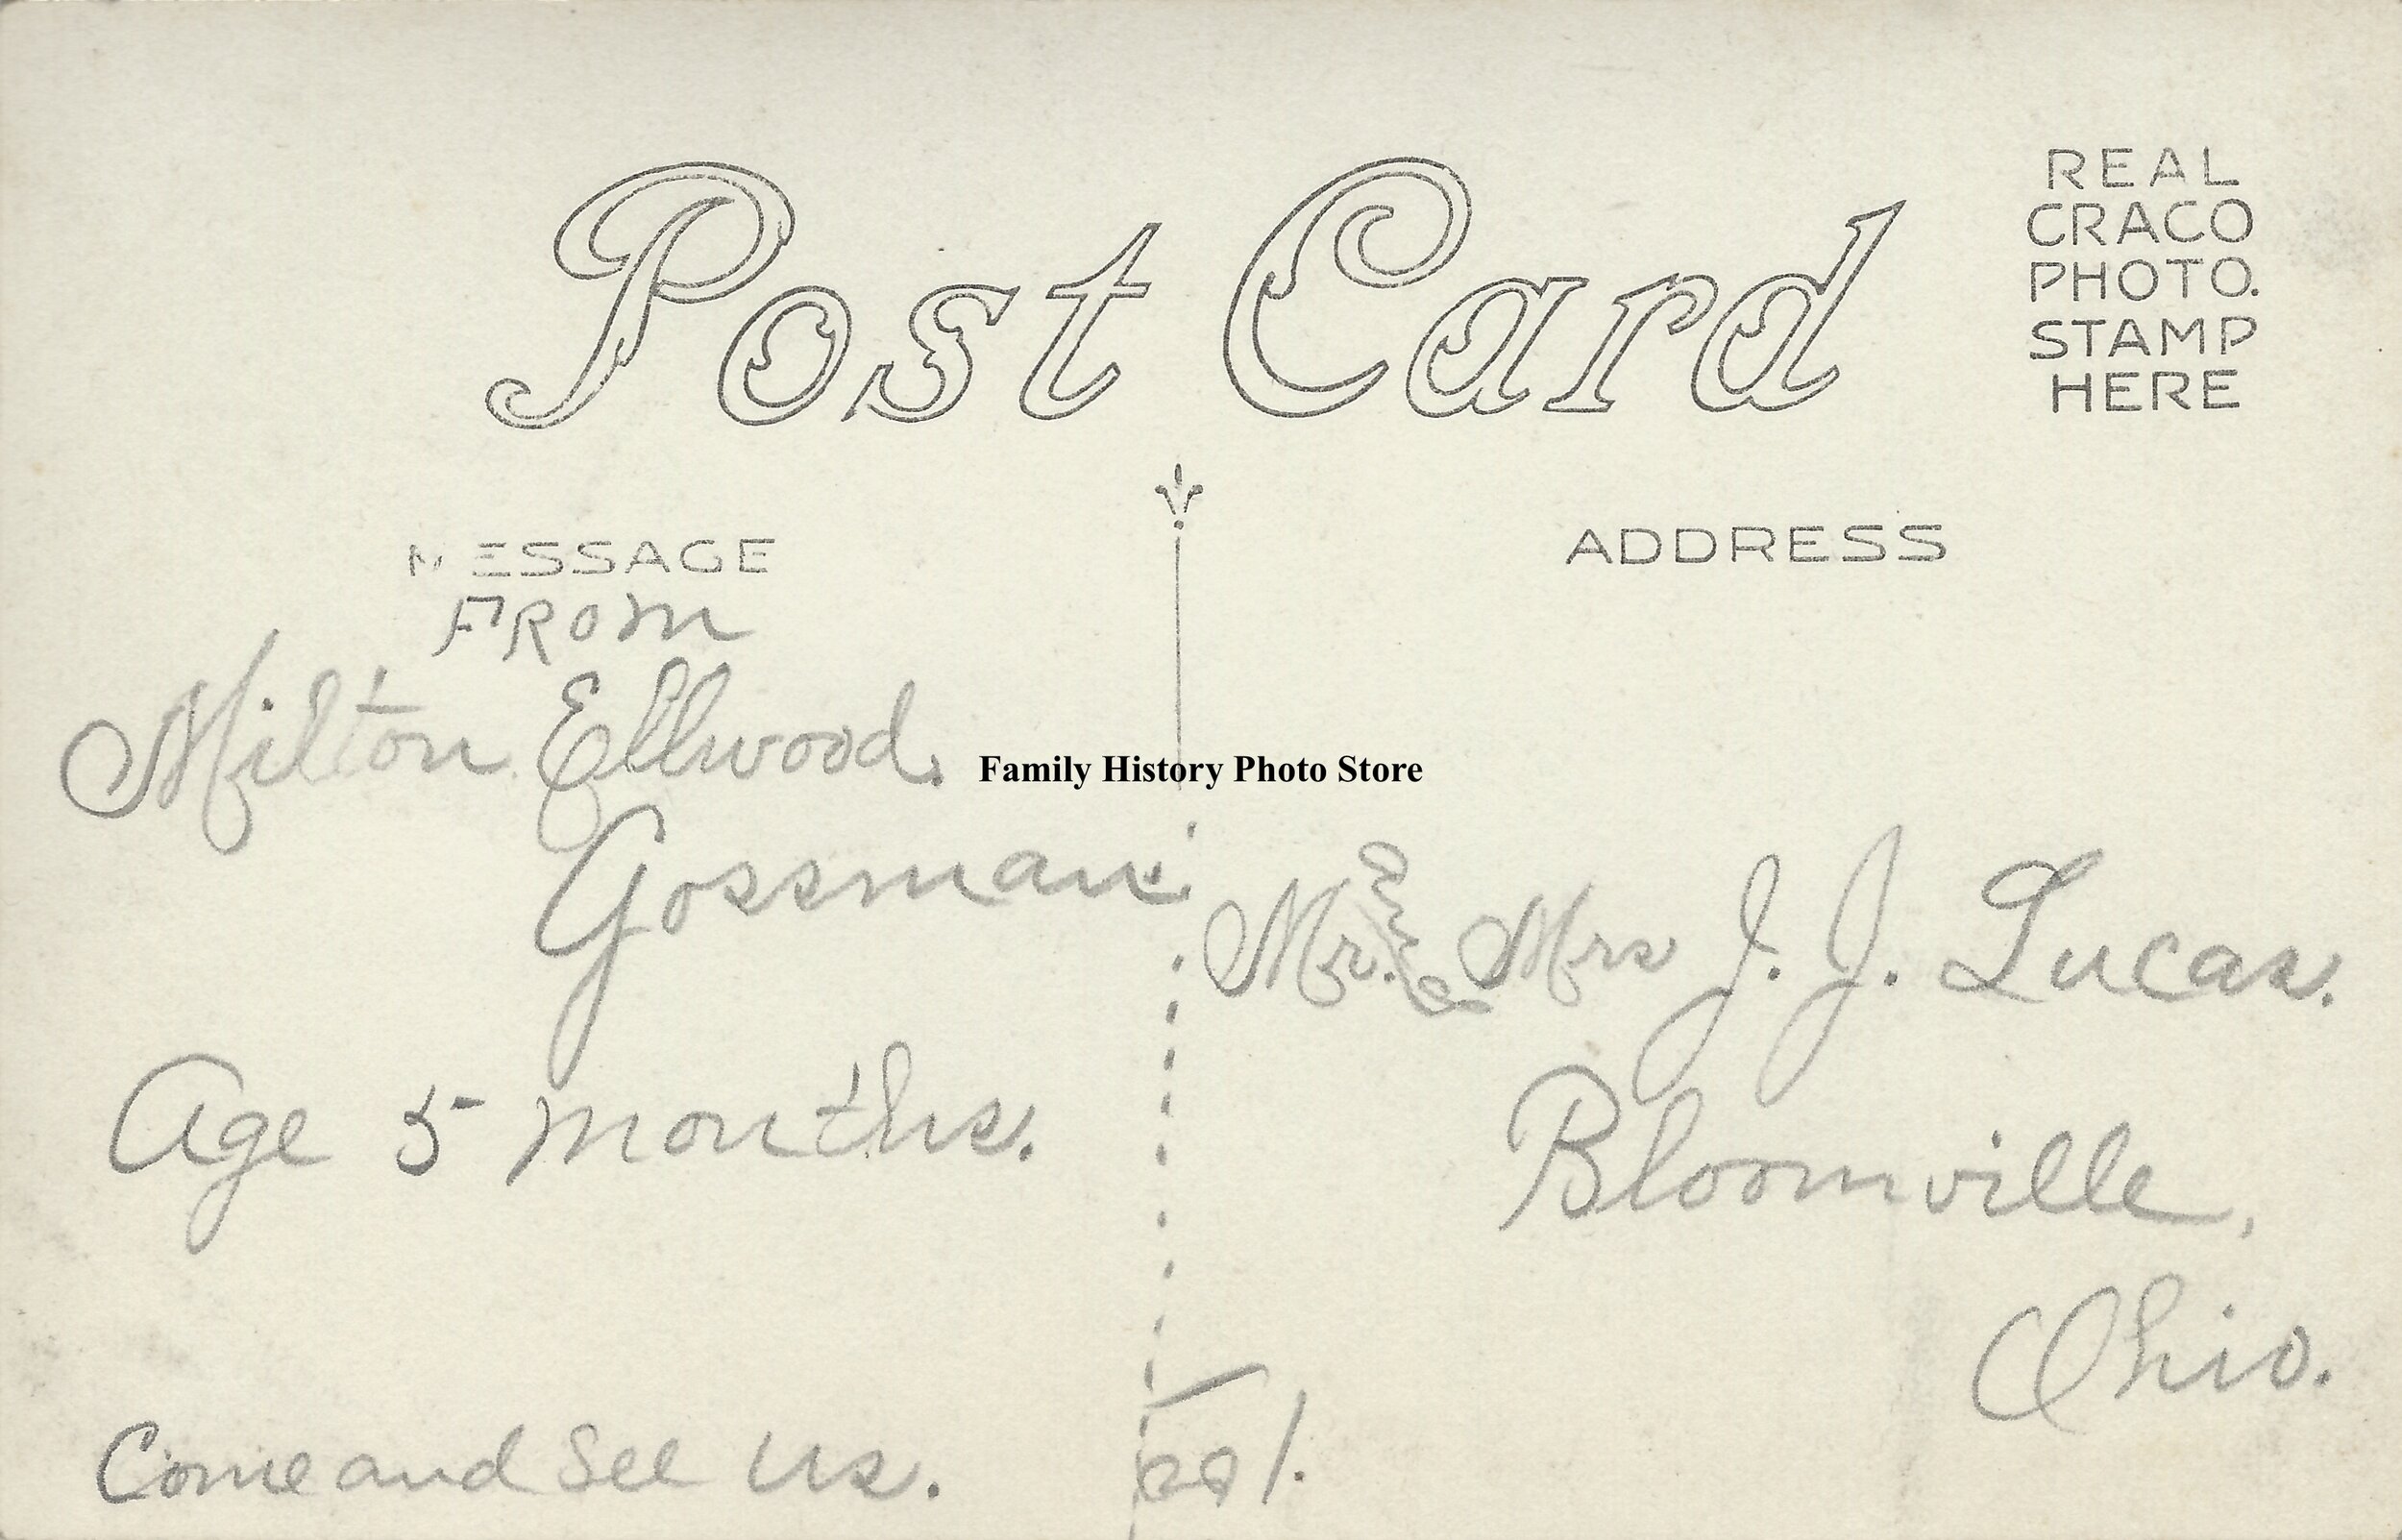 Post Card
REAL
CRACO
PHOTO.
STAMP
HERE
MESSAGE
FROM
Milton Ellwood.
Gossman.
Age 5 months.
Come and See Us.
Family History Photo Store
ADDRESS
Mr. & Mrs J. J. Lucas.
Bloomville,
Ohio.